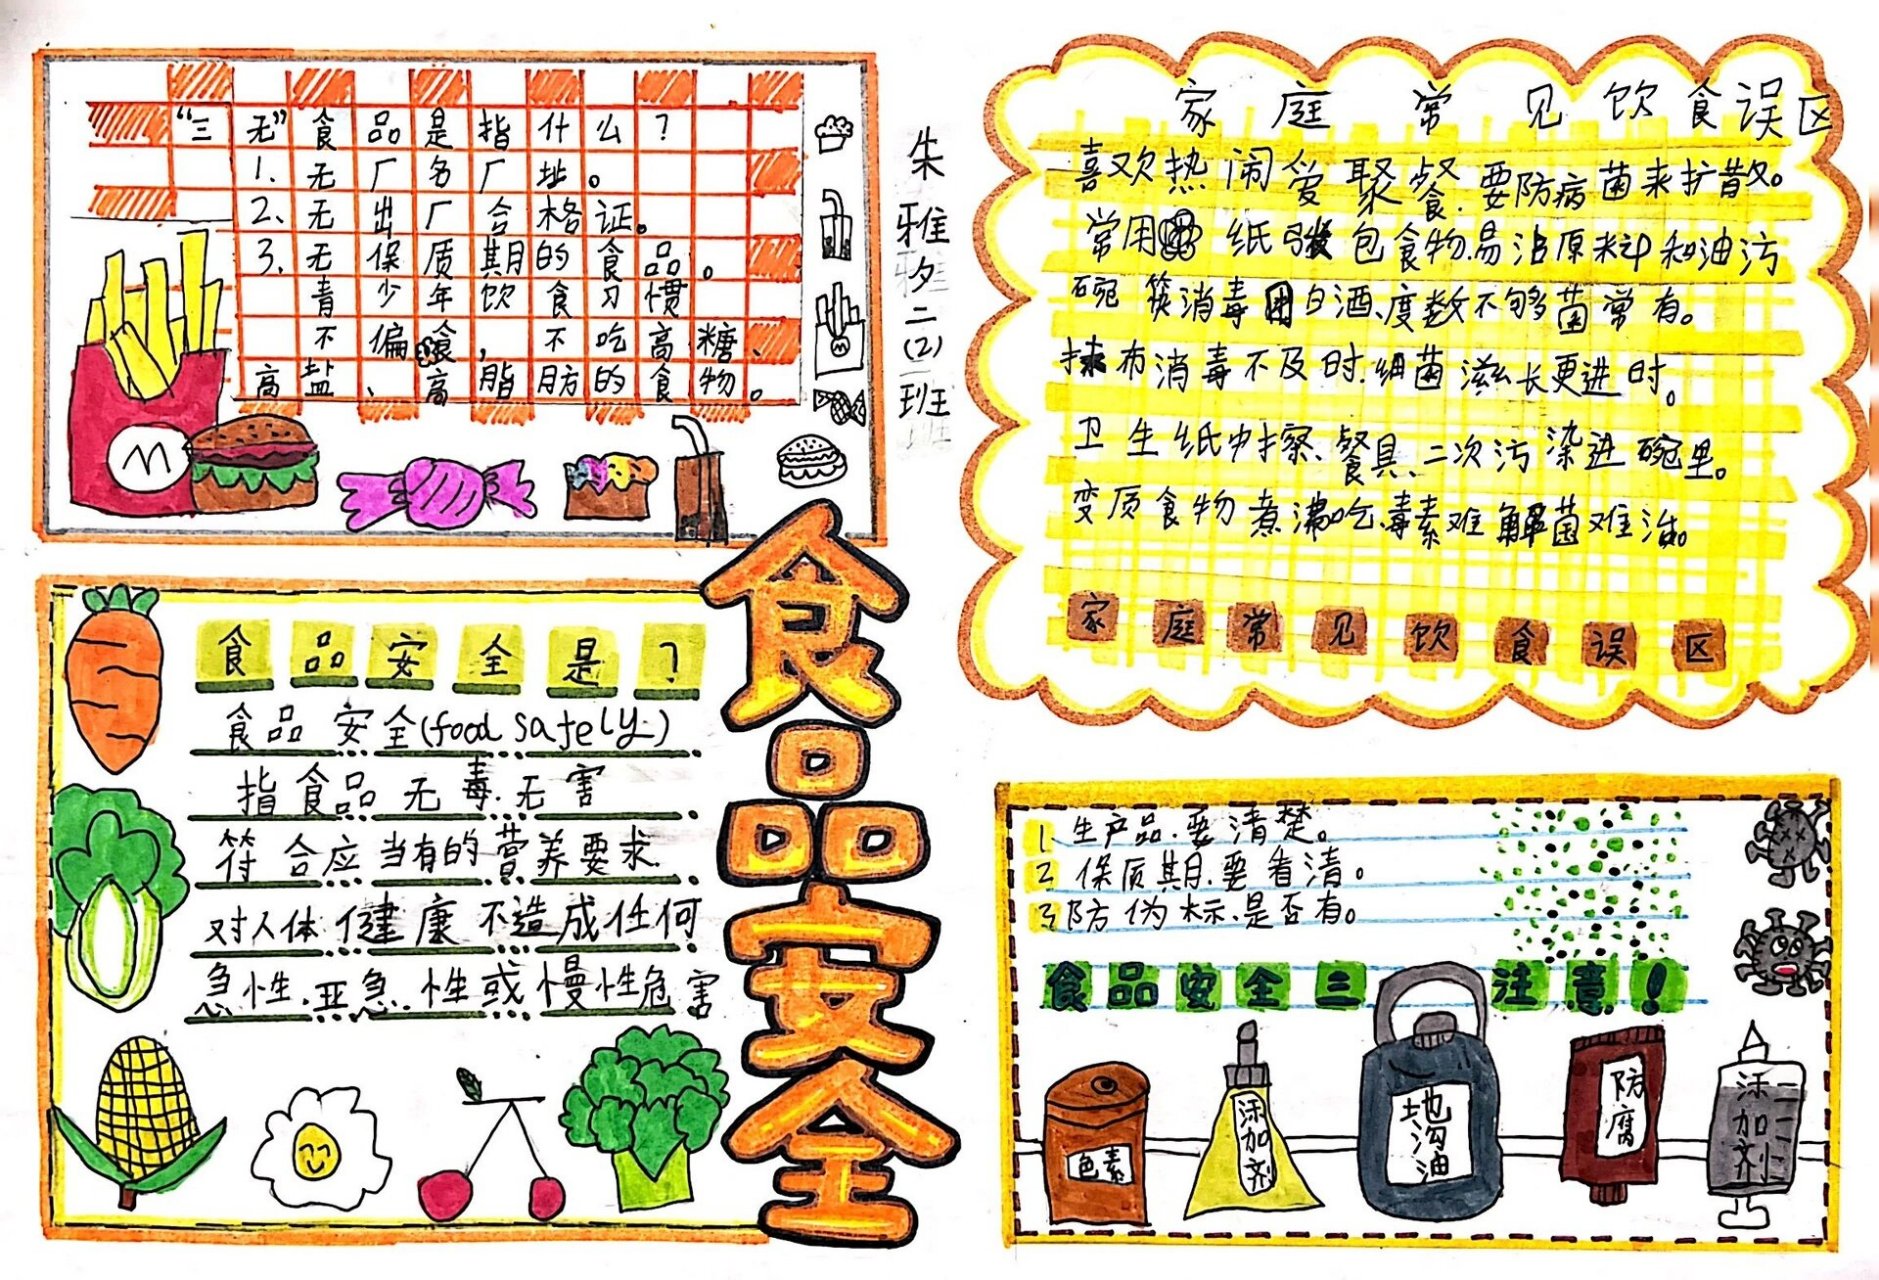 “三无”食品是指什么？
1. 无厂名厂址。
2、无出厂合格证。
3、无保质期的食品。
青少年饮食习惯
不偏食，不吃高糖、
高盐、高脂肪的食物。
M
M
朱雅夕二(2)班
食品安全
食品安全是？
食品安全(food safely)
指食品无毒、无害
符合应当有的营养要求
对人体健康不造成任何
急性、亚急、性或慢性危害
家庭常见饮食误区
喜欢热闹爱聚餐、要防病菌来扩散。
常用 纸 包食物、易沾原料和油污
碗筷消毒用白酒、度数不够菌常有。
抹布消毒不及时、细菌滋长更进时。
卫生纸巾擦、餐具、二次污染进碗里。
变质食物煮沸吃、毒素难解菌难治。
家庭常见饮食误区
1、生产品、要清楚。
2 保质期、要看清。
3 防伪标、是否有。
食品安全三注意！
色素
添加剂
地沟油
防腐
添加剂